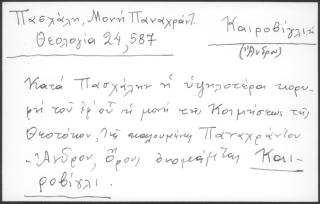 Πασχάλη, Μονή Παναχράντ.
Θεολογία 24, 587
Καιροβίγλι
(Άνδρου)
Κατά Πασχάλην ἡ ὑψηλοτέρα κορυ-
φή τοῦ ἐφ' οὗ ἡ μονή τῆς Κοιμήσεως τῆς
Θεοτόκου, τῆς καλουμένης Παναχράντου
Ἄνδρου, ὄρους ὀνομάζεται Και-
ροβίγλι.